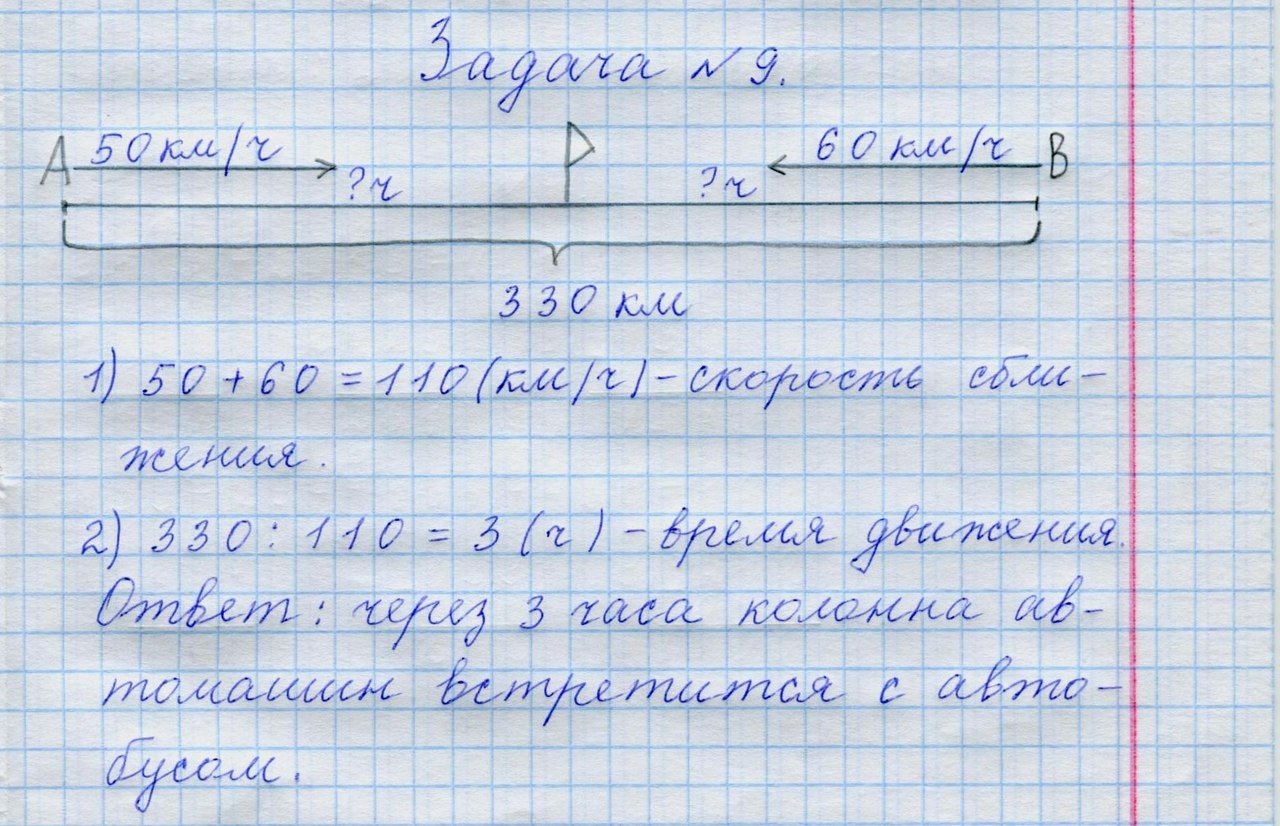 Задача №9.
А 50 км/ч ?ч ?ч 60 км/ч В
330 км
1) 50 + 60 = 110 (км/ч) - скорость сбли-
жения.
2) 330 : 110 = 3 (ч) - время движения.
Ответ: через 3 часа колонна ав-
томашин встретится с авто-
бусом.